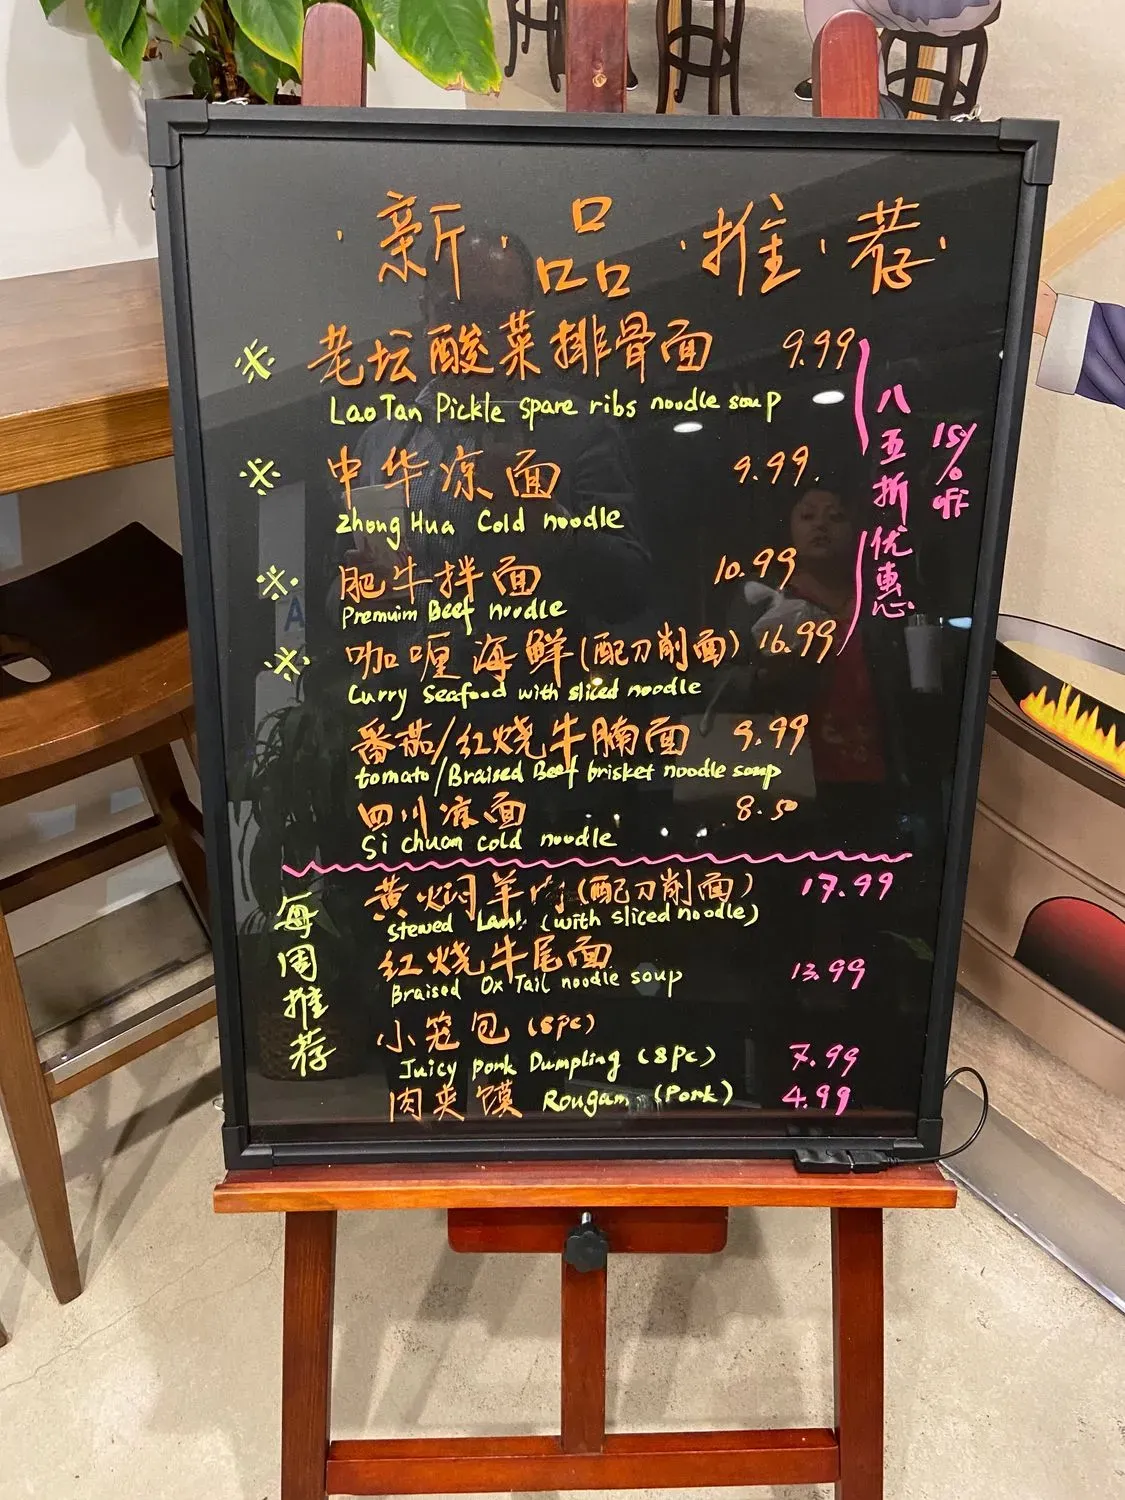 ·新·品·推·荐·
※ 老坛酸菜排骨面 9.99
LaoTan Pickle spare ribs noodle soup
※ 中华凉面 9.99.
Zhong Hua Cold noodle
※ 肥牛拌面 10.99
Premuim Beef noodle
※ 咖喱海鲜(配刀削面) 16.99
Curry Seafood with sliced noodle
八五折优惠
15% off
番茄/红烧牛腩面 9.99
tomato/Braised Beef brisket noodle soup
四川凉面 8.50
Si chuan cold noodle
每周推荐
黄焖羊肉(配刀削面) 17.99
Stewed Lamb (with sliced noodle)
红烧牛尾面
Braised Ox Tail noodle soup 13.99
小笼包 (8pc)
Juicy pork Dumpling (8pc) 7.99
肉夹馍 Rougam (Pork) 4.99
A